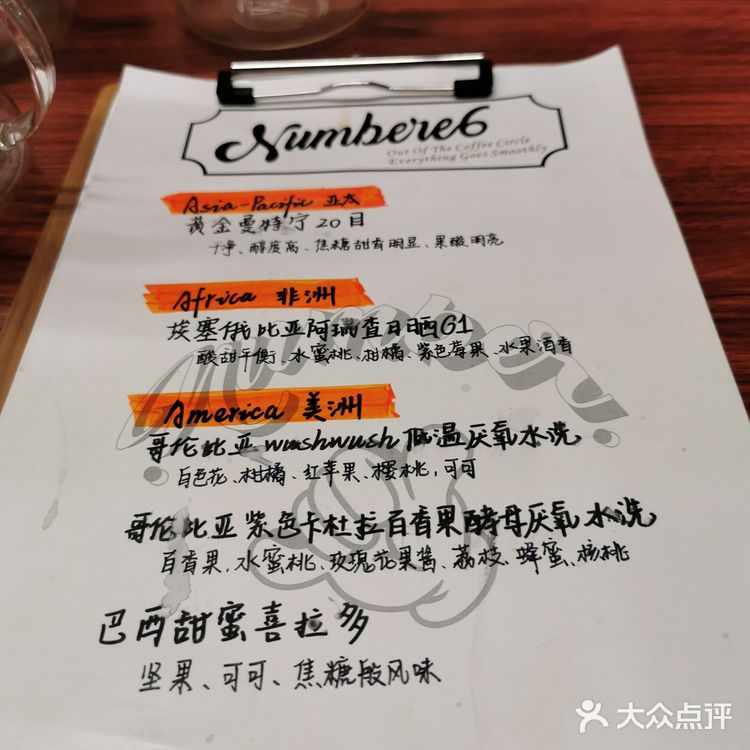 Numbere6
Out Of The Coffee Circle
Everything Goes Smoothly
Asia-Pacific 亚太
黄金曼特宁20目
干净、醇度高、焦糖甜香明显、果酸明亮
Africa 非洲
埃塞俄比亚阿瑞查日晒G1
酸甜平衡、水蜜桃、柑橘、紫色莓果、水果酒香
Number
America 美洲
哥伦比亚wushwush低温厌氧水洗
白色花、柑橘、红苹果、樱桃,可可
哥伦比亚紫色卡杜拉百香果酵母厌氧水洗
百香果,水蜜桃、玫瑰花果酱、荔枝、蜂蜜、核桃
巴西甜蜜喜拉多
坚果、可可、焦糖般风味
大众点评